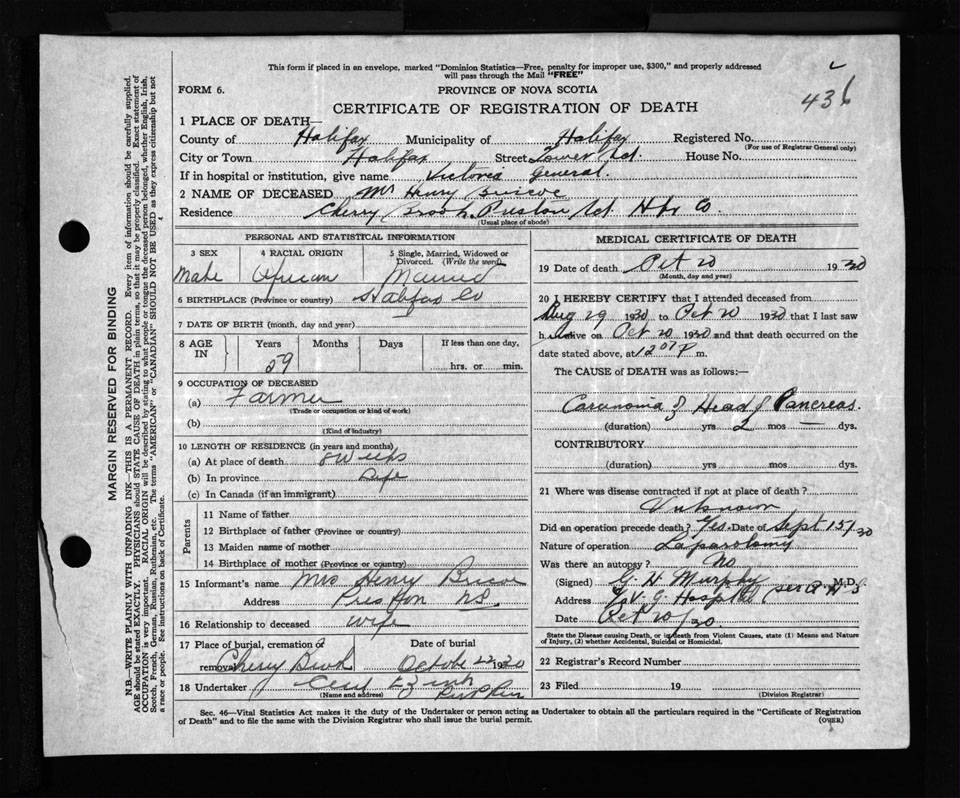 This form if placed in an envelope, marked "Dominion Statistics—Free, penalty for improper use, $300," and properly addressed
will pass through the Mail "FREE"
FORM 6.
PROVINCE OF NOVA SCOTIA
436
CERTIFICATE OF REGISTRATION OF DEATH
1 PLACE OF DEATH—
County of Halifax Municipality of Halifax Registered No.
(For use of Registrar General only)
City or Town Halifax Street Tower Rd. House No.
If in hospital or institution, give name Victoria General.
2 NAME OF DECEASED Mr Henry
Residence Cherry Brook Preston Rd Hfx Co.
(Usual place of abode)
PERSONAL AND STATISTICAL INFORMATION
3 SEX
4 RACIAL ORIGIN
5 Single, Married, Widowed or Divorced. (Write the word)
Male African Married
6 BIRTHPLACE (Province or country) Halifax Co
7 DATE OF BIRTH (month, day and year)
8 AGE IN
Years Months Days If less than one day,
59 hrs. or min.
9 OCCUPATION OF DECEASED
(a) Farmer
(Trade or occupation or kind of work)
(b)
(Kind of industry)
10 LENGTH OF RESIDENCE (in years and months)
(a) At place of death 8 Weeks
(b) In province Life
(c) In Canada (if an immigrant)
Parents
11 Name of father
12 Birthplace of father (Province or country)
13 Maiden name of mother
14 Birthplace of mother (Province or country)
15 Informant's name Mrs Henry
Address Preston N.S.
16 Relationship to deceased wife
17 Place of burial, cremation or removal Cherry Brook
Date of burial October 22 1930
18 Undertaker Cecil
(Name and address)
MEDICAL CERTIFICATE OF DEATH
19 Date of death Oct 20 1930
(Month, day and year)
20 I HEREBY CERTIFY that I attended deceased from
Aug 29 1930 to Oct 20 1930 that I last saw
h alive on Oct 20 1930 and that death occurred on the
date stated above, at 12 07 P m.
The CAUSE of DEATH was as follows:—
Carcinoma of Head of Pancreas.
(duration) yrs 2 mos — dys.
CONTRIBUTORY
(duration) yrs mos dys.
21 Where was disease contracted if not at place of death?
Unknown
Did an operation precede death? Yes. Date of Sept 15/30
Nature of operation Laparotomy
Was there an autopsy? No
(Signed) G. H. Murphy M.D.
Address V. G. Hospital
Date Oct 20/30.
State the Disease causing Death, or in death from Violent Causes, state (1) Means and Nature
of Injury, (2) whether Accidental, Suicidal or Homicidal.
22 Registrar's Record Number
23 Filed 19
(Division Registrar)
Sec. 46—Vital Statistics Act makes it the duty of the Undertaker or person acting as Undertaker to obtain all the particulars required in the "Certificate of Registration
of Death" and to file the same with the Division Registrar who shall issue the burial permit.
(OVER)
MARGIN RESERVED FOR BINDING
N.B.—WRITE PLAINLY WITH UNFADING INK—THIS IS A PERMANENT RECORD. Every item of information should be carefully supplied.
AGE should be stated EXACTLY. PHYSICIANS should STATE CAUSE OF DEATH in plain terms, so that it may be properly classified. Exact statement of
OCCUPATION is very important. RACIAL ORIGIN will be described by stating to what people or tongue the deceased person belonged, whether English, Irish,
Scotch, French, German, Russian, Ruthenian, etc. The terms "AMERICAN" or "CANADIAN" SHOULD NOT BE USED as they express citizenship but not
a race or people. See instructions on back of Certificate.